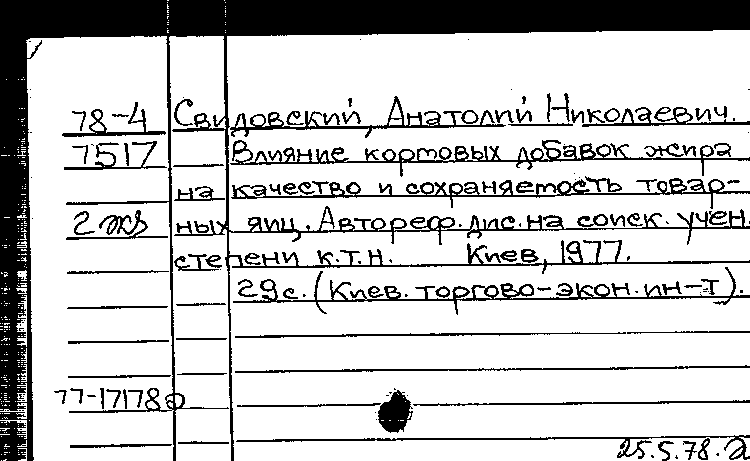 78-4 Свидовский, Анатолий Николаевич.
7517 Влияние кормовых добавок жира
на качество и сохраняемость товар-
2 экз ных яиц. Автореф. дис. на соиск. учен.
степени к.т.н. Киев, 1977.
29с. (Киев. торгово-экон. ин-т).
77-17178о
25.5.78.